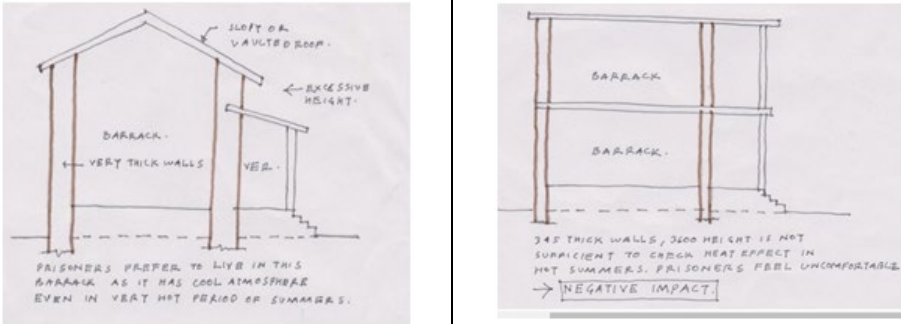 SLOPY OR
VAULTED ROOF.
EXCESSIVE
HEIGHT.
BARRACK.
VERY THICK WALLS
VER.
PRISONERS PREFER TO LIVE IN THIS
BARRACK AS IT HAS COOL ATMOSPHERE
EVEN IN VERY HOT PERIOD OF SUMMERS.
BARRACK
BARRACK.
345 THICK WALLS, 3600 HEIGHT IS NOT
SUFFICIENT TO CHECK HEAT EFFECT IN
HOT SUMMERS. PRISONERS FEEL UNCOMFORTABLE
NEGATIVE IMPACT.